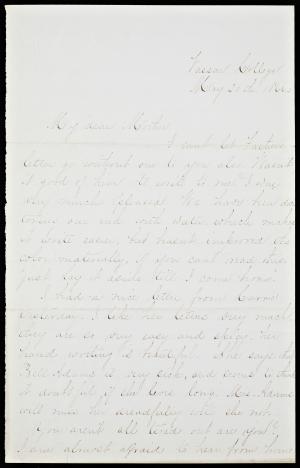 Vassar College
May 20th
My dear Mother,
I can't let Father's
letter go without one to you also. Wasn't
it good of him to write to me? I was
very much pleased. We have
our ink with water, which makes
it write easier, but hasn't improved its
color materially, if you can't read this
just lay it aside till I come home.
I had a nice letter from Carrie
yesterday. I like her letters very much
they are so very easy and spicy. Her
hand writing is beautiful. She says that
Bell Adams is very sick, and seems to think
it doubtful if she lives long. Mrs. Adams
will miss her dreadfully will she not.
You aren't all tired out are you?
I am almost afraid to hear from home